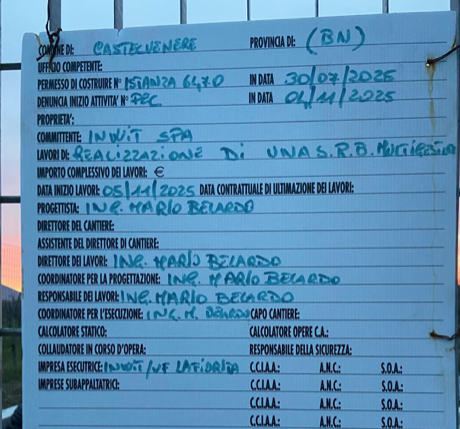 COMUNE DI: CASTELVENERE PROVINCIA DI: (BN)
UFFICIO COMPETENTE:
PERMESSO DI COSTRUIRE N° ISTANZA 6470 IN DATA 30/07/2025
DENUNCIA INIZIO ATTIVITA' N° PEC IN DATA 04/11/2025
PROPRIETA':
COMMITTENTE: INWIT SPA
LAVORI DI: REALIZZAZIONE DI UNA S.R.B. MULTIGESTORE
IMPORTO COMPLESSIVO DEI LAVORI: €
DATA INIZIO LAVORI: 05/11/2025 DATA CONTRATTUALE DI ULTIMAZIONE DEI LAVORI:
PROGETTISTA: ING. MARIO BELARDO
DIRETTORE DEL CANTIERE:
ASSISTENTE DEL DIRETTORE DI CANTIERE:
DIRETTORE DEI LAVORI: ING. MARIO BELARDO
COORDINATORE PER LA PROGETTAZIONE: ING. MARIO BELARDO
RESPONSABILE DEI LAVORI: ING. MARIO BELARDO
COORDINATORE PER L'ESECUZIONE: ING. M. BELARDO CAPO CANTIERE:
CALCOLATORE STATICO: CALCOLATORE OPERE C.A.:
COLLAUDATORE IN CORSO D'OPERA: RESPONSABILE DELLA SICUREZZA:
IMPRESA ESECUTRICE: INWIT/ C.C.I.A.A.: A.N.C.: S.O.A.:
IMPRESE SUBAPPALTATRICI: C.C.I.A.A.: A.N.C.: S.O.A.:
C.C.I.A.A.: A.N.C.: S.O.A.:
C.C.I.A.A.: A.N.C.: S.O.A.: